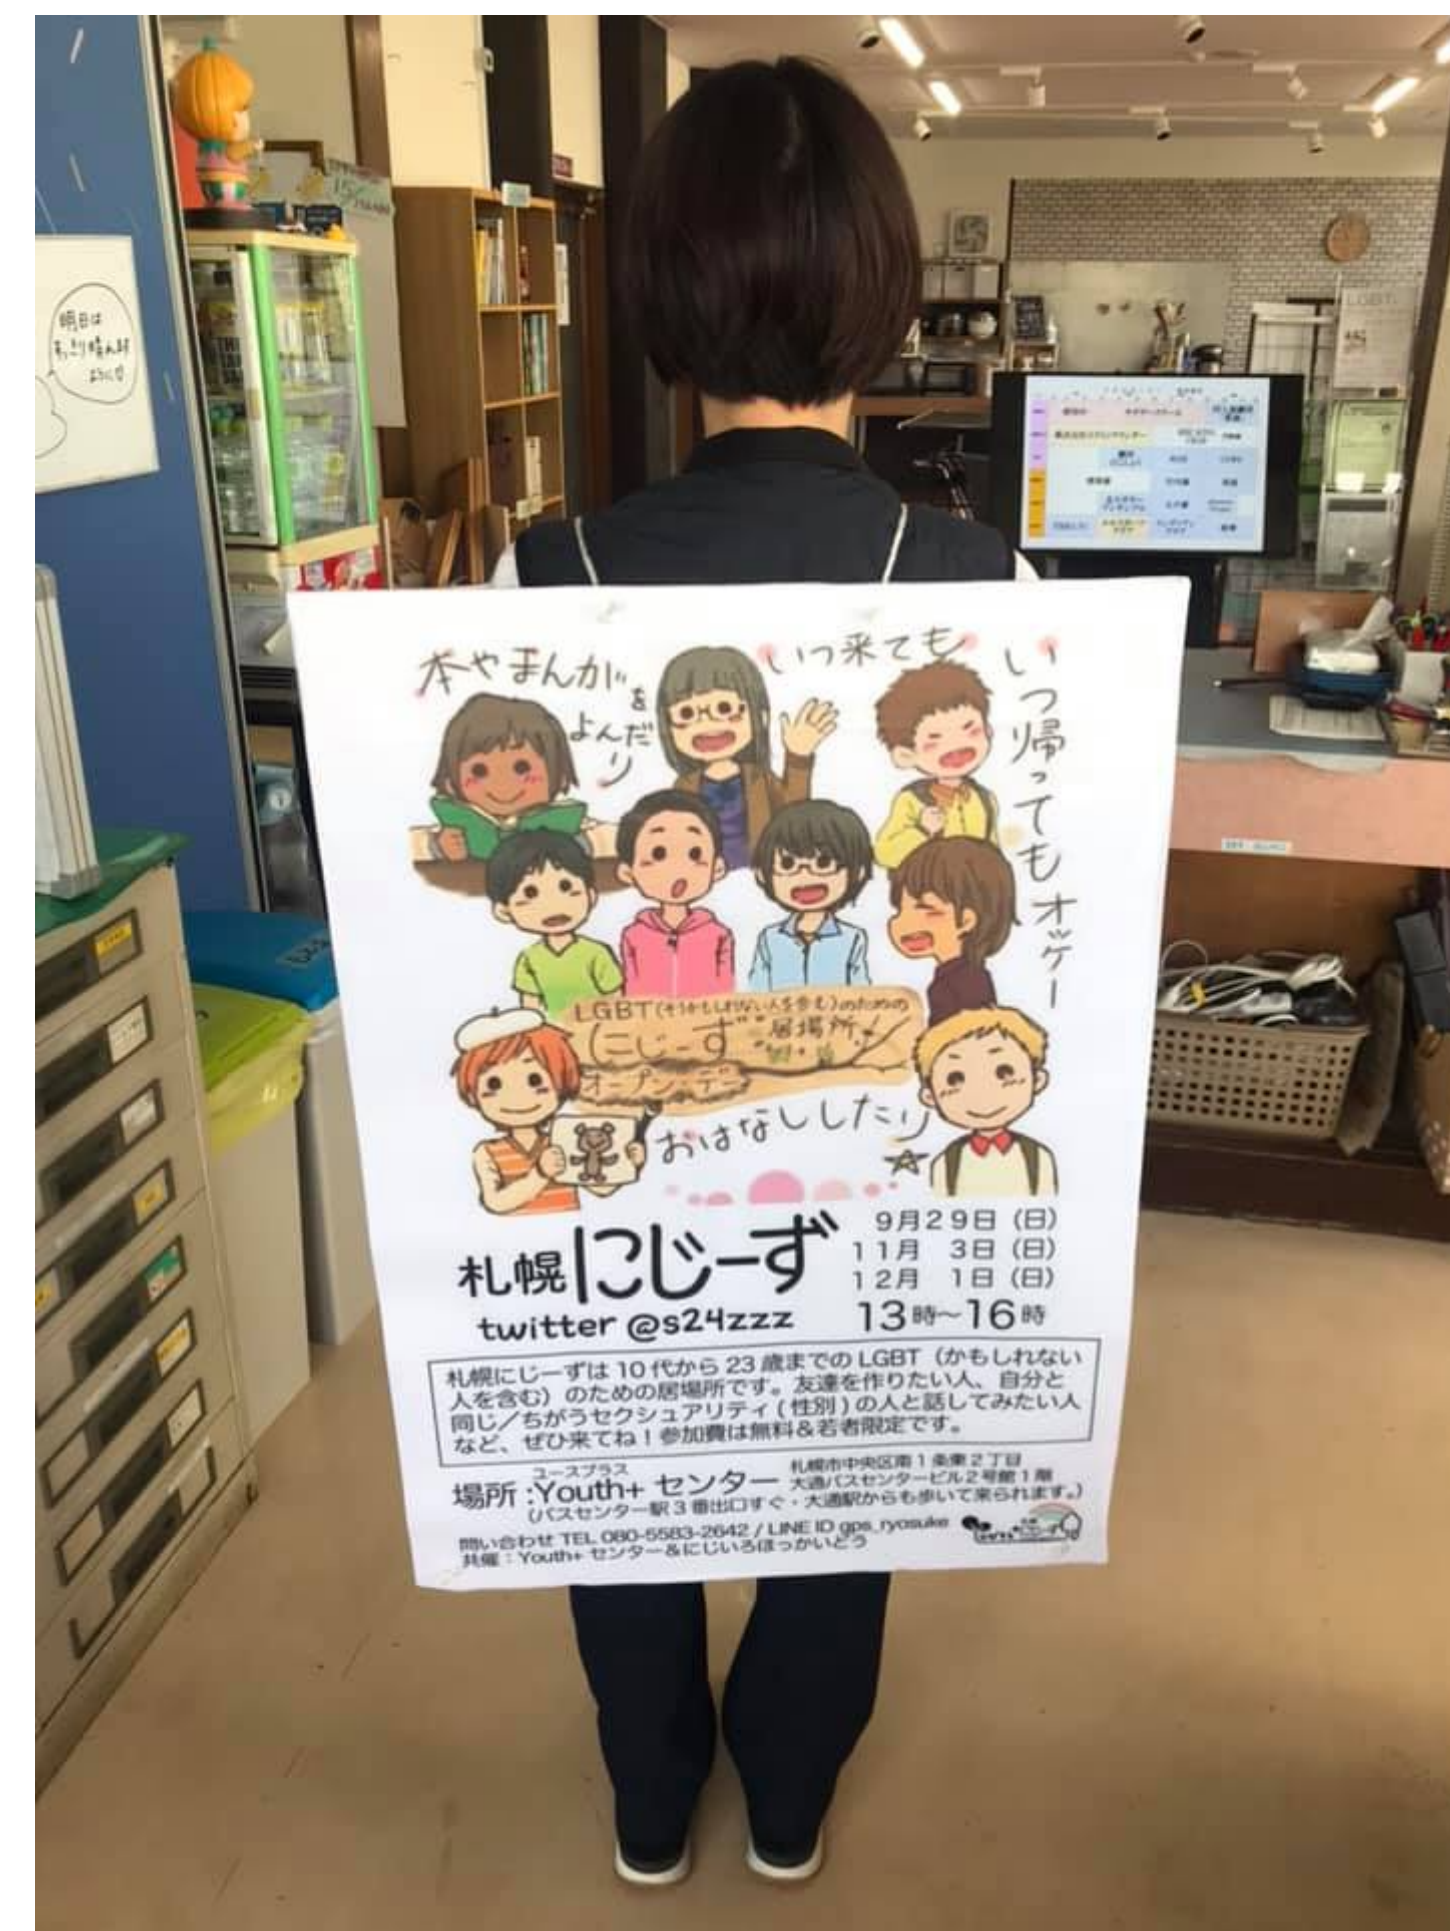 本やまんがを
よんだり
いつ来ても
いつ帰ってもオッケー
LGBT(そうかもしれない人を含む)のための
にじーず 居場所
オープンデー
おはなししたり
札幌にじーず
twitter @s24zzz
9月29日(日)
11月 3日(日)
12月 1日(日)
13時~16時
札幌にじーずは10代から23歳までのLGBT(かもしれない
人を含む)のための居場所です。友達を作りたい人、自分と
同じ/ちがうセクシュアリティ(性別)の人と話してみたい人
など、ぜひ来てね!参加費は無料&若者限定です。
ユースプラス
場所:Youth+ センター
札幌市中央区南1条東2丁目
大通バスセンタービル2号館1階
(バスセンター駅3番出口すぐ・大通駅からも歩いて来られます。)
問い合わせ TEL 080-5583-2642 / LINE ID gps_ryosuke
共催:Youth+ センター&にじいろほっかいどう
明日は
LGBT